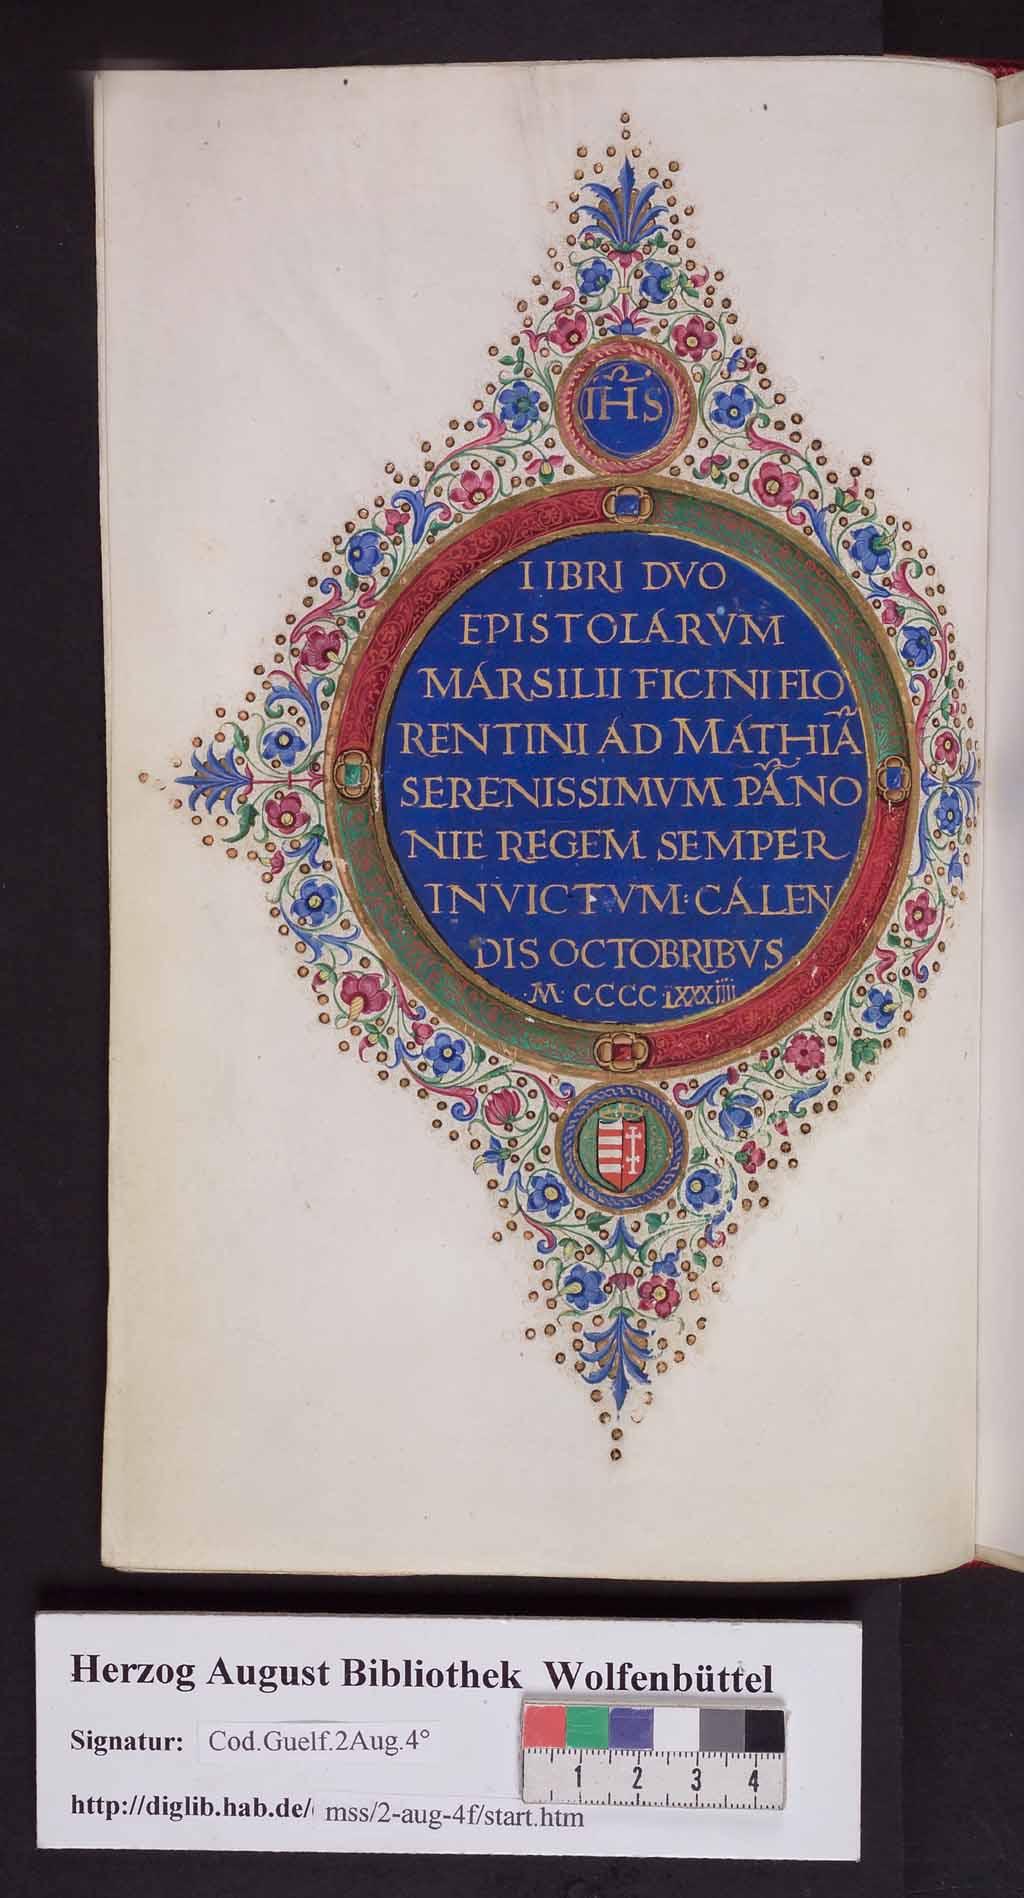 IH̃S
LIBRI DVO
EPISTOLARVM
MARSILII FICINI FLO
RENTINI AD MATHIÃ
SERENISSIMVM PÃNO
NIE REGEM SEMPER
INVICTVM: CALEN
DIS OCTOBRIBVS
.M. CCCC LXXXIIII
Herzog August Bibliothek Wolfenbüttel
Signatur: Cod.Guelf.2Aug.4°
1 2 3 4
http://diglib.hab.de/ mss/2-aug-4f/start.htm